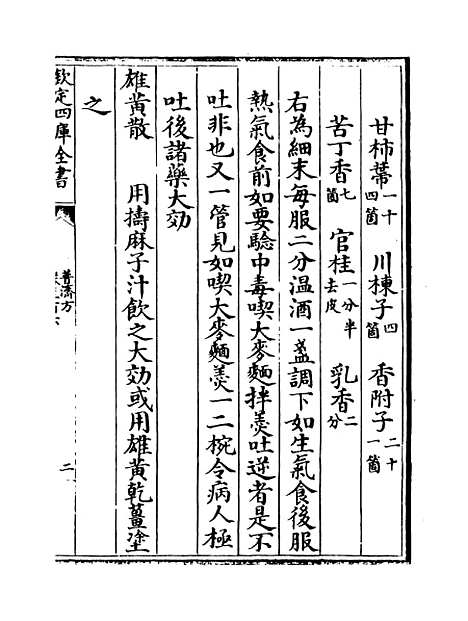 甘柿蒂一十四箇 川楝子四箇 香附子二十一箇
苦丁香七箇 官桂一分半去皮 乳香二分
右為細末每服二分温酒一盞調下如生氣食後服
熱氣食前如要騐中毒喫大麥麵拌羮吐逆者是不
吐非也又一管見如喫大麥麵羮一二椀令病人極
吐後諸藥大効
雄黄散 用擣麻子汁飲之大効或用雄黄乾薑塗
之
欽定四庫全書
普濟方
二